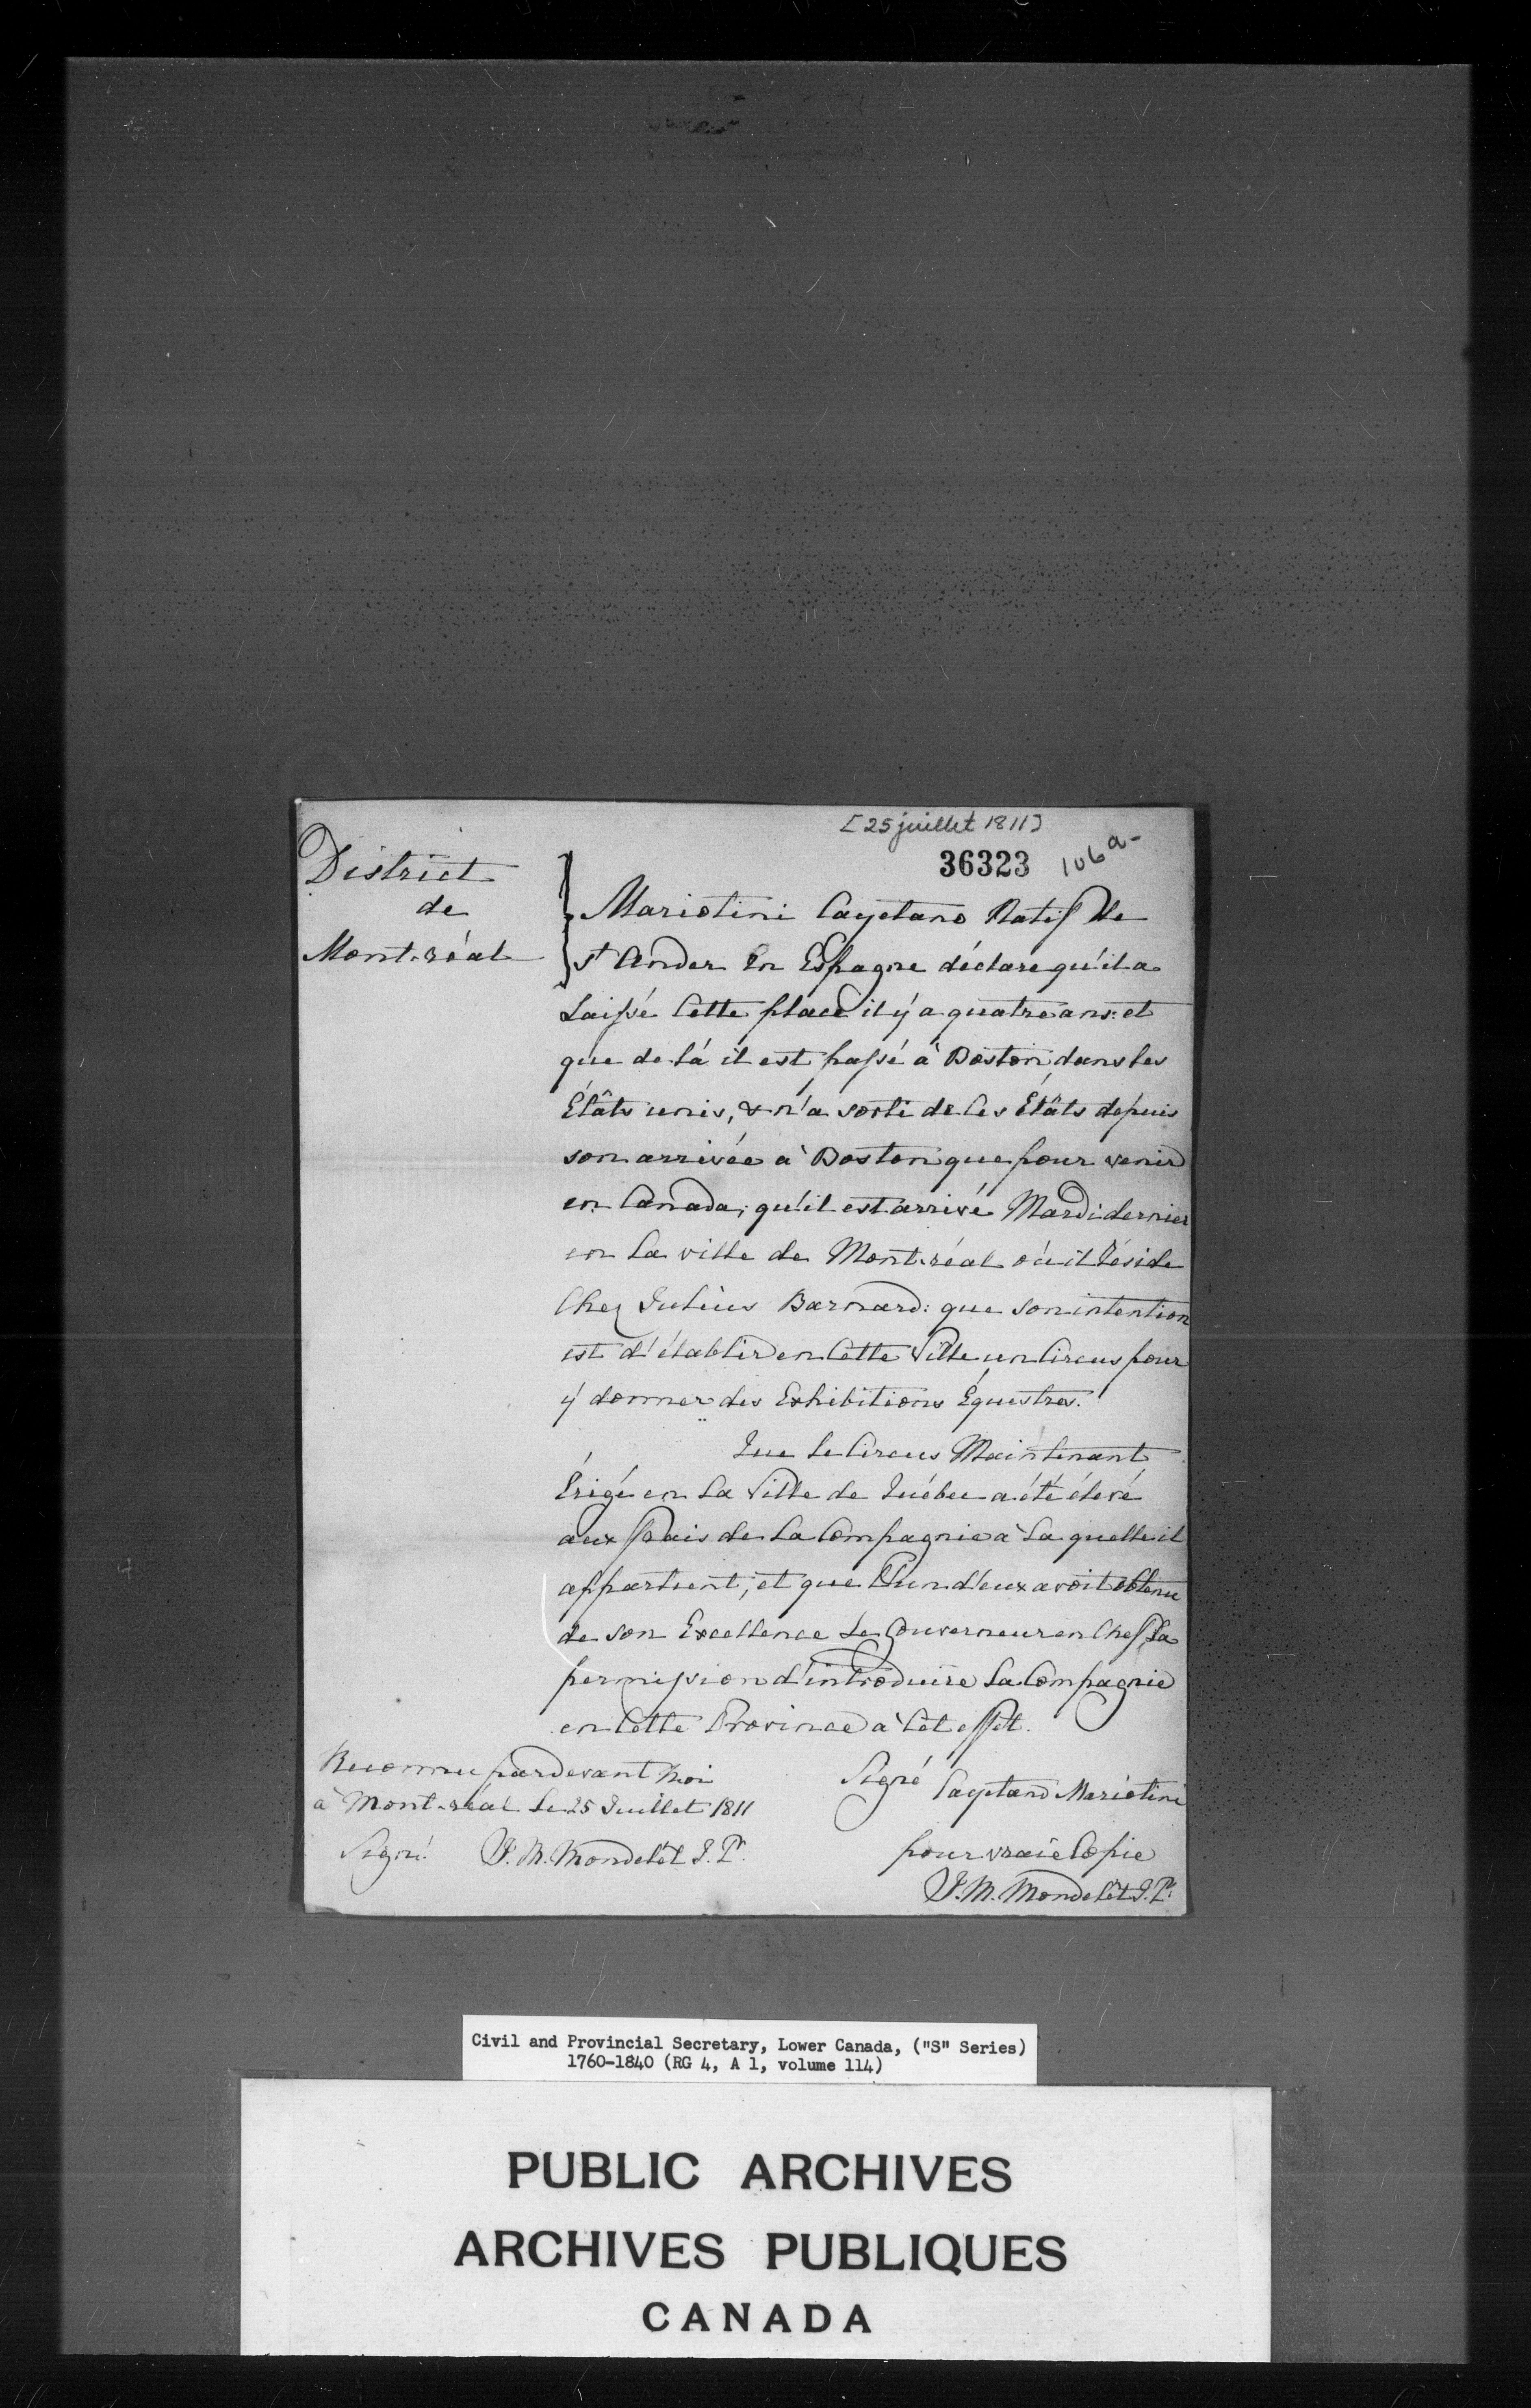 [25 juillet 1811]
36323 106a-
District
de
Mont-réal
Mariotini Cayetano Natif de
St Ander En Espagne déclare qu'il a
Laissé Cette place il y a quatre ans: et
que de là il est passé à Boston, dans les
États unis, & n'a sorti de Ces États depuis
son arrivée à Boston que pour venir
en Canada; qu'il est arrivé Mardi dernier
en La ville de Mont-réal où il Réside
Chez Julius Barnard: que son intention
est d'établir en Cette Ville un Circus pour
y donner des Exhibitions Équestres.
Que Le Circus Maintenant
Érigé en La Ville de Québec a été élevé
aux frais de La Compagnie à La quelle il
appartient; et que L'un d'eux avoit obtenu
de son Excellence Le Gouverneur en Chef La
permission d'introduire La Compagnie
en Cette Province à Cet effet.
Reconnu pardevant Moi
à Mont-réal Le 25 Juillet 1811
Signé J. M. Mondelèt J. Pr.
Signé Cayetano Mariotini
pour vraie Copie
J. M. Mondelèt J. Pr.
Civil and Provincial Secretary, Lower Canada, ("S" Series)
1760-1840 (RG 4, A 1, volume 114)
PUBLIC ARCHIVES
ARCHIVES PUBLIQUES
CANADA